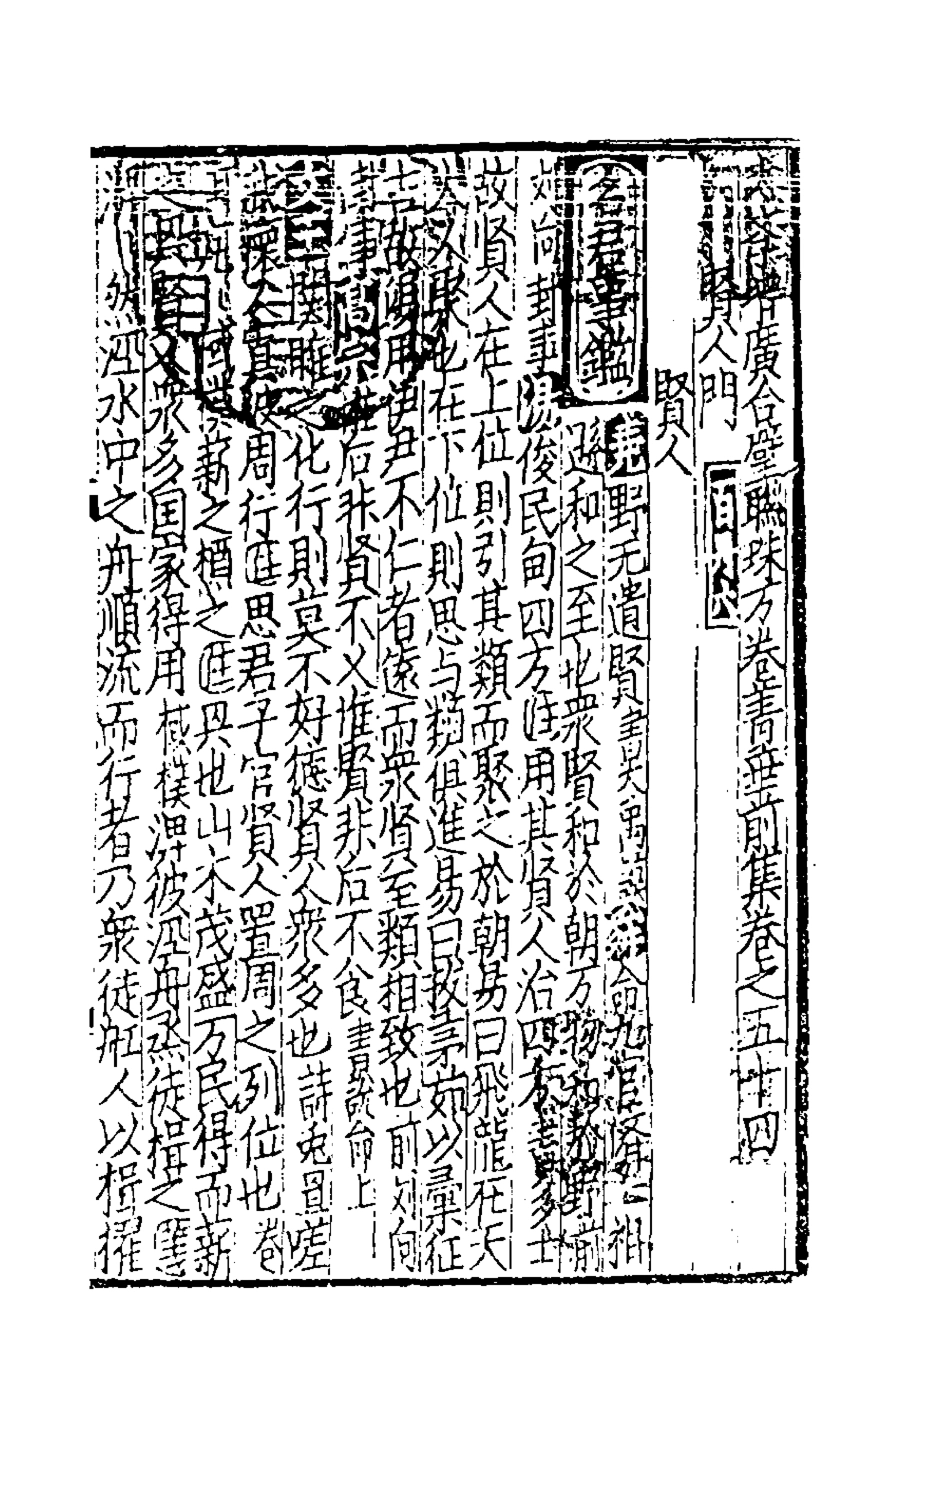 壁聯珠方卷善𦶜前集卷之五十四
賢人門
賢人
名君事鑑 堯野无遺賢書大禹謨舜命九官濟濟相
遜和之至也眾賢和於朝万物和於野前
刘向封事湯俊民甸四方注用其賢人治四方書多士
故賢人在上位則引其類而聚之於朝易曰飛龍在天
大人聚也在下位則思与類俱進易曰拔茅茹以彙征
吉故湯用伊尹不仁者遠而眾賢至類相致也前刘向
封事高宗惟后非賢不乂惟賢非后不食書說命上
文王関雎之化行則莫不好德賢人眾多也詩兎罝嗟
我懷人寘彼周行注思君子官賢人置周之列位也卷
薪之槱之注興也山木茂盛万民得而薪
之賢人眾多国家得用棫樸淠彼涇舟烝徒楫之
淠然涇水中之舟順流而行者乃眾徒舡人以楫擢